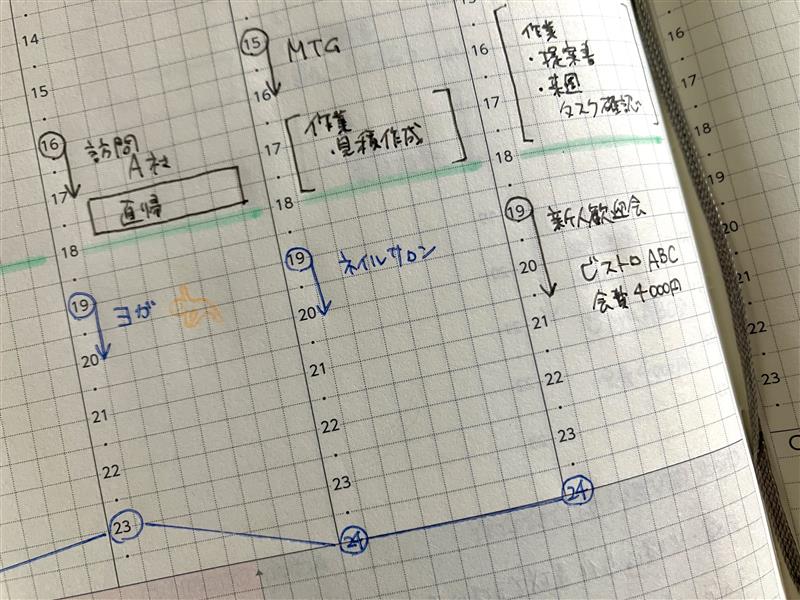 14
15
⑯ 訪問
A社
17
直帰
18
⑲ ヨガ
20
21
22
㉓
⑮ MTG
16
作業
17 ・見積作成
18
⑲ ネイルサロン
20
21
22
23
㉔
作業
16 ・提案書
・某図
17 タスク確認
18
⑲ 新人歓迎会
20 ビストロABC
会費4000円
21
22
23
㉔
16
17
18
20
21
22
23